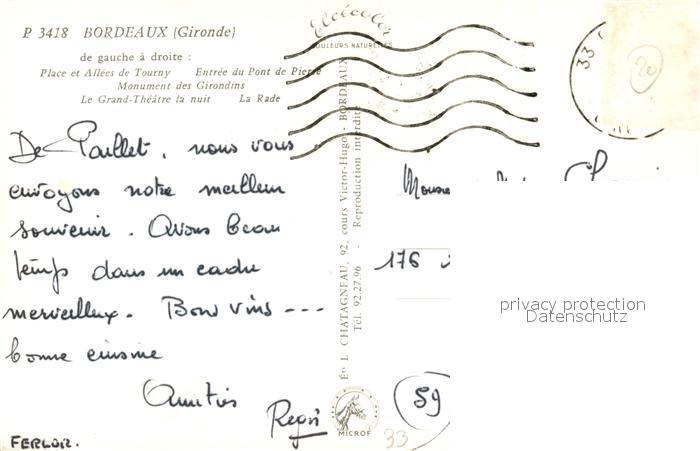 P 3418 BORDEAUX (Gironde)
de gauche à droite :
Place et Allées de Tourny Entrée du Pont de Pierre
Monument des Girondins
Le Grand-Théâtre la nuit La Rade
Elcécolor
COULEURS NATURELLES
33
20
De Paillet, nous vous
envoyons notre meilleur
souvenir. Avons beau
temps dans un cadre
merveilleux. Bons vins ---
bonne cuisine
Amitiés
FERLOIR.
Éd. L. CHATAGNEAU, 92, cours Victor-Hugo - BORDEAUX
Tél. 92.27.96 - Reproduction interdite
MICROF
33
176
59
privacy protection
Datenschutz